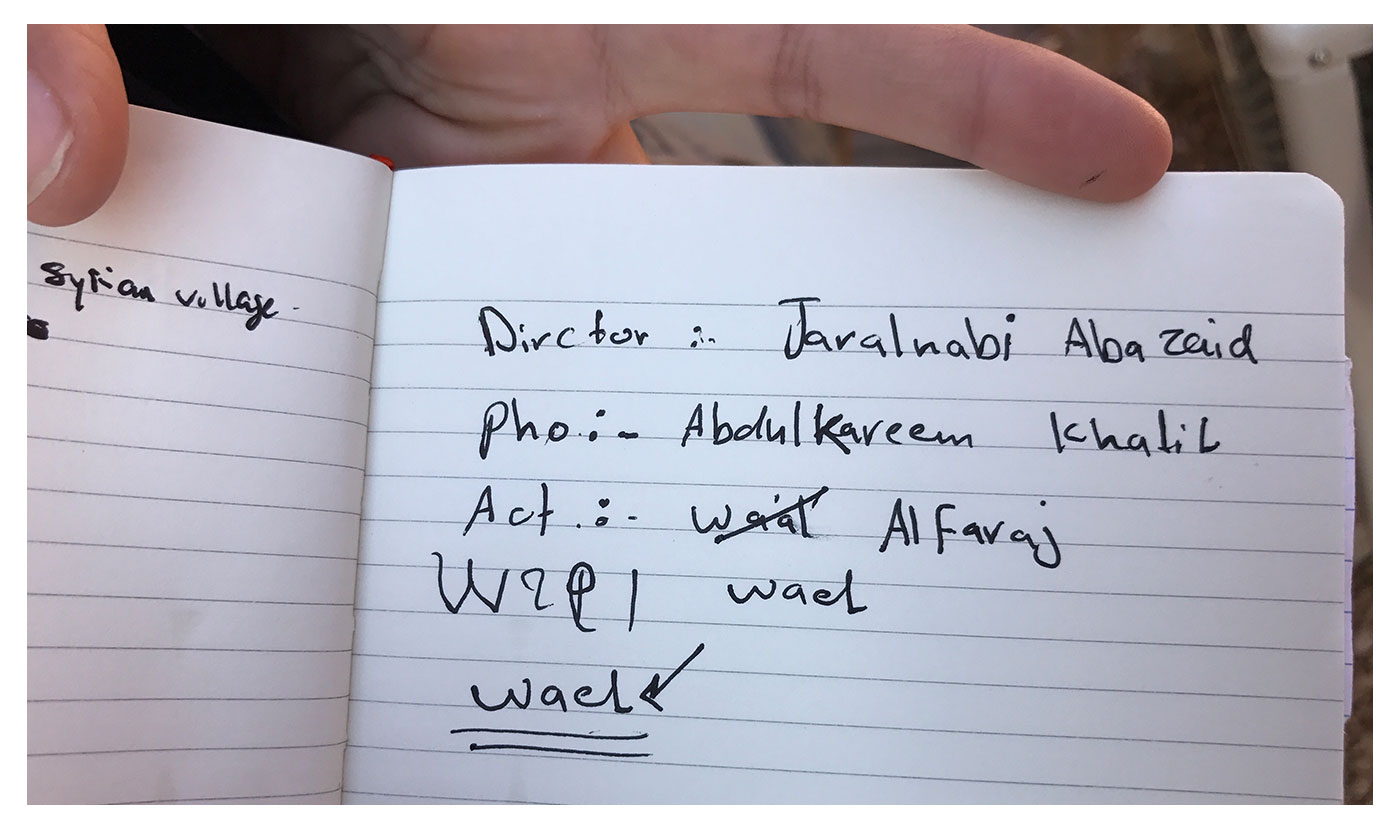 Syrian village -
Dirctor :- Jaralnabi Aba zaid
Pho.:- Abdulkareem Khalil
Act.:- Alfaraj
wael
wael